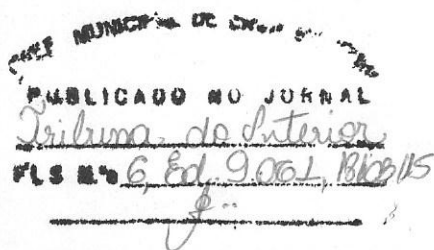 MUNICIPAL DE
PUBLICADO NO JORNAL
Tribuna do Interior
FLS Nº 6, Ed. 9.061, 18/08/15